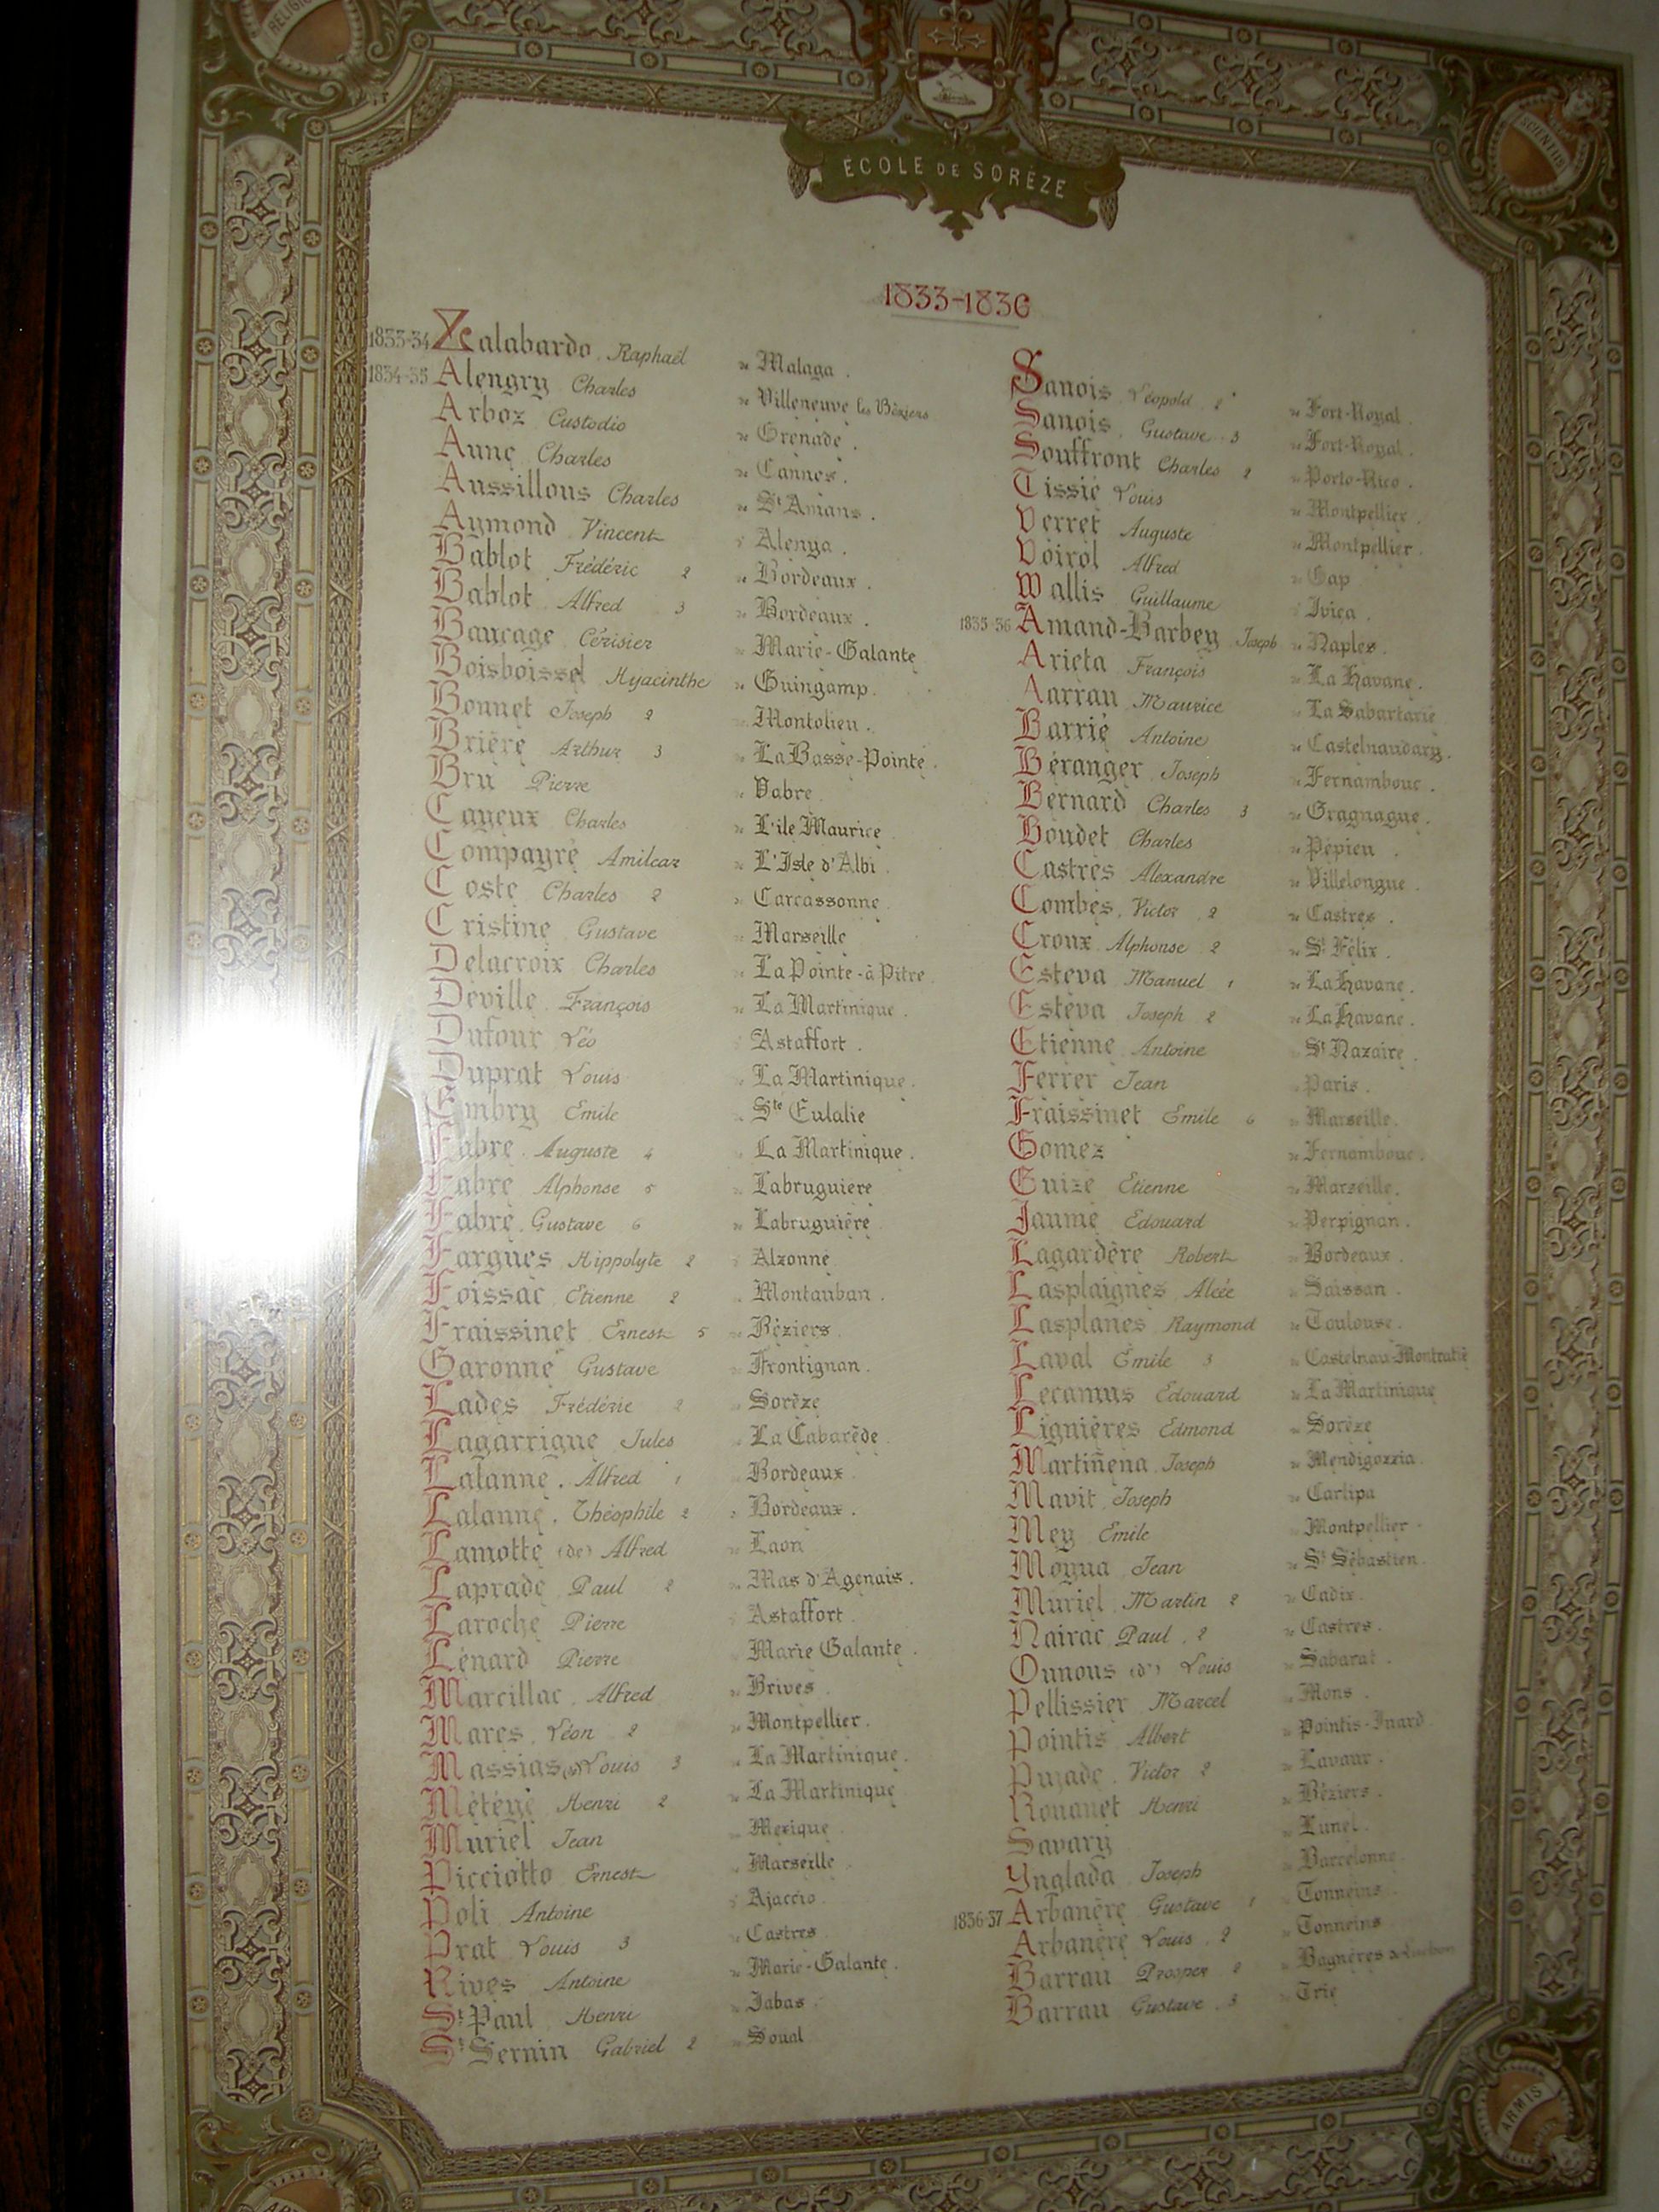 RELIGIO
SCIENTIÆ
ÉCOLE DE SORÈZE
1833-1836
1833-34 Xalabardo Raphaël " Malaga.
1834-35 Alengry Charles " Villeneuve les Béziers
Arboz Custodio " Grenade.
Aune Charles " Cannes.
Aussillous Charles " St Amans.
Aymond Vincent " Alenya.
Bablot Frédéric 2 " Bordeaux.
Bablot Alfred 3 " Bordeaux.
Baucage Cérisier " Marie-Galante
Boisboissel Hyacinthe " Guingamp.
Bonnet Joseph 2 " Montolieu.
Brière Arthur 3 " La Basse-Pointe.
Bru Pierre " Vabre
Cayeux Charles " L'ile Maurice
Compayré Amilcar " L'Isle d'Albi.
Coste Charles 2 " Carcassonne
Cristine Gustave " Marseille
Delacroix Charles " La Pointe-à Pitre.
Déville François " La Martinique.
Dufour Léo " Astaffort.
Duprat Louis " La Martinique.
Embry Emile " Ste Eulalie
Fabre Auguste 4 " La Martinique.
Fabre Alphonse 5 " Labruguiere
Fabre Gustave 6 " Labruguière
Fargues Hippolyte 2 " Alzonne
Foissac Etienne 2 " Montauban.
Fraissinet Ernest 5 " Béziers
Garonne Gustave " Frontignan.
Lades Frédéric 2 " Sorèze
Lagarrigue Jules " La Cabarède
Lalanne. Alfred 1 " Bordeaux.
Lalanne. Théophile 2 " Bordeaux.
Lamotte (de) Alfred " Laon
Laprade Paul 2 " Mas d'Agenais.
Laroche Pierre " Astaffort.
Lénard Pierre " Marie Galante.
Marcillac Alfred " Brives
Mares Léon 2 " Montpellier.
Massias Louis 3 " La Martinique.
Météyé Henri 2 " La Martinique
Muriel Jean " Mexique
Picciotto Ernest " Marseille
Poli Antoine " Ajaccio
Prat Louis 3 " Castres
Rives Antoine " Marie-Galante.
St Paul Henri " Jabas
St Sernin Gabriel 2 " Soual
Sanois Léopold 2 " Fort-Royal.
Sanois Gustave 3 " Fort-Royal.
Souffront Charles 2 " Porto-Rico.
Tissié Louis " Montpellier.
Verret Auguste " Montpellier.
Voirol Alfred " Gap
Wallis Guillaume " Ivica.
1835-36 Amand-Barbey Joseph " Naples.
Arieta François " La Havane.
Aarrau Maurice " La Sabartarié
Barrié Antoine " Castelnaudary.
Béranger Joseph " Fernambouc.
Bernard Charles 3 " Gragnague.
Boudet Charles " Pépieu.
Castres Alexandre " Villelongue.
Combes Victor 2 " Castres.
Croux Alphonse 2 " St Félix.
Esteva Manuel 1 " La Havane.
Estéva Joseph 2 " La Havane.
Etienne Antoine " St Nazaire.
Ferrer Jean " Paris.
Fraissinet Emile 6 " Marseille.
Gomez " Fernambouc.
Guize Etienne " Marseille.
Jaume Edouard " Perpignan.
Lagardère Robert " Bordeaux.
Lasplaignes Alcée " Saissan.
Lasplanes Raymond " Toulouse.
Laval Émile 3 " Castelnau-Montratié
Lecamus Edouard " La Martinique
Lignières Edmond " Sorèze
Martiñena Joseph " Mendigorria.
Mavit Joseph " Carlipa
Mey Emile " Montpellier.
Moyua Jean " St Sébastien.
Muriel Martin 2 " Cadix.
Nairac Paul 2 " Castres.
Ounous (d') Louis " Sabarat.
Pellissier Marcel " Mons.
Pointis Albert " Pointis-Inard
Pujade Victor 2 " Lavaur.
Rouanet Henri " Béziers.
Savary " Lunel.
Ynglada Joseph " Barcelonne
1836-37 Arbanère Gustave 1 " Tonneins.
Arbanère Louis 2 " Tonneins
Barrau Prosper 2 " Bagnères de Luchon
Barrau Gustave 3 " Trie
ARMIS